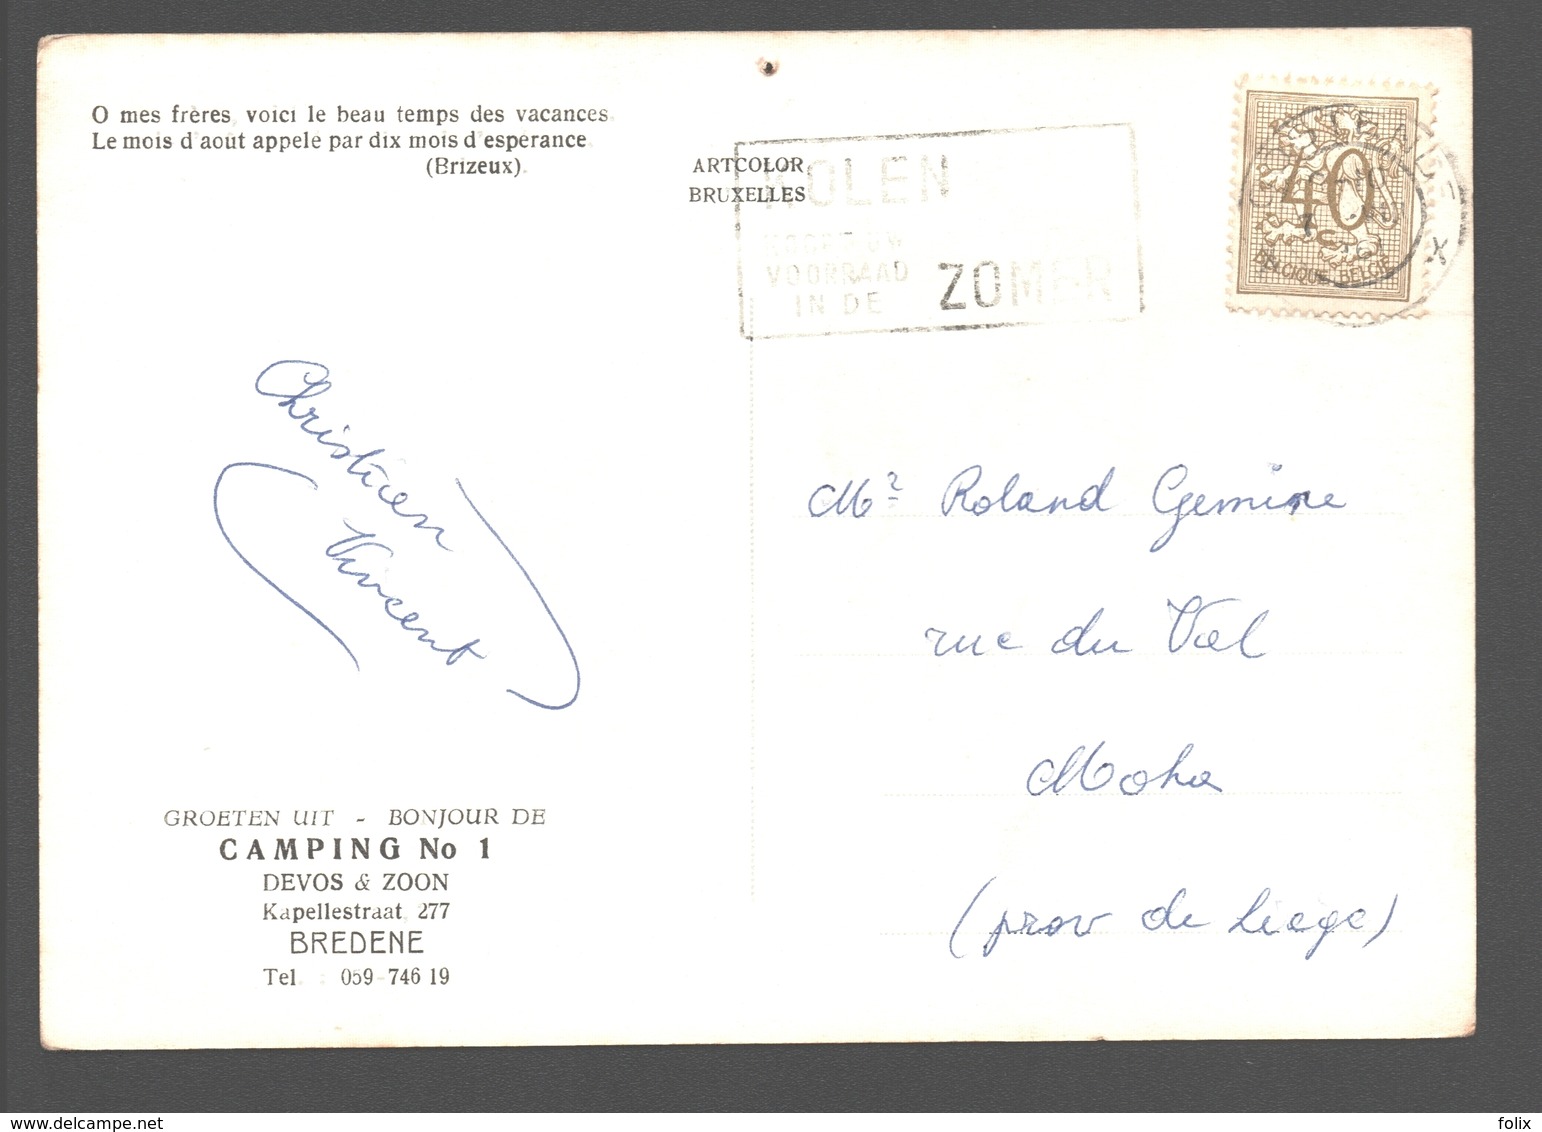 O mes frères, voici le beau temps des vacances.
Le mois d'août appelé par dix mois d'espérance
(Brizeux).
ARTCOLOR
BRUXELLES
KOLEN
VOORRAAD
IN DE ZOMER
40
BELGIQUE-BELGIE
Christian
Vincent
Mr Roland Gemine
rue du Val
Moha
(prov de Liège)
GROETEN UIT - BONJOUR DE
CAMPING No 1
DEVOS & ZOON
Kapellestraat, 277
BREDENE
Tel. : 059-746 19
delcampe.net
folix